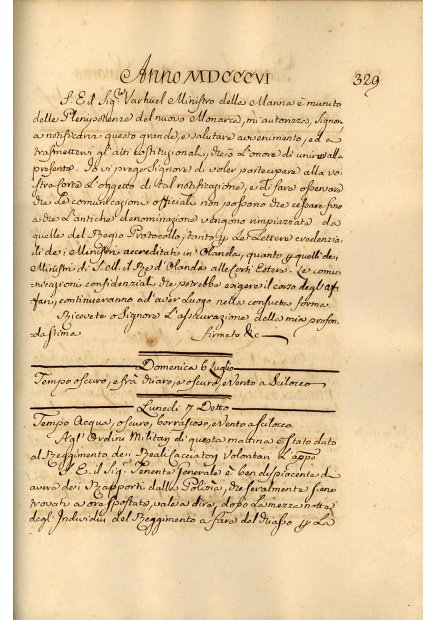 Anno MDCCCVI 329
S. E. il Sig.e Varhuel Ministro della Marina è munito
delle Plenipotenze del nuovo Monarca, mi autorizza, Signor,
a notificarvi questo grande, e salutare avvenimento, ed a
trasmettervi gl'atti Costituzionali, che ò l'onore di unire alla
presente. Io vi prego Signore di voler partecipare alla vo-
stra Corte l'oggetto di tal notificazione, e di fare osservare
che le comunicazioni officiali non possono che cessare fino
a che l'antiche denominazione vengono rimpiazzate da
quelle del Regio Protocollo, tanto p le Lettere credenzia-
li de i Ministri accreditati in Olanda, quanto p quelli de i
Ministri di S. M. il Re d'Olanda alle Corti Estere. Le comu-
nicazioni confidenziali che potrebbe exigere il corso degl'af-
fari, continueranno ad aver luogo nella consueta forma.
Ricevete o Signore l'assicurazione della mia profon-
da stima firmato &c
Domenica 6 Luglio
Tempo oscuro, e frà chiaro, e oscuro, e Vento a Scilocco
Lunedì 7 Detto
Tempo Acqua, oscuro, borrascoso, e Vento a Scilocco
Agl'Ordini Militari di questa mattina è stato dato
al Reggimento de i Reali Cacciatori Volontari l'app.e
S. E. il Sig.e Tenente Generale è ben dispiacente di
avere dei Rapporti dalla Polizia, che sieno
trovati a ore spostate, vale a dire, dopo la mezza notte
degl'Individui del Reggimento a fare del chiasso p la